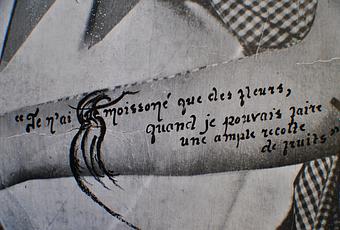 "Je n'ai moissoné que des fleurs,
quand je pouvais faire
une ample recolte
de fruits"